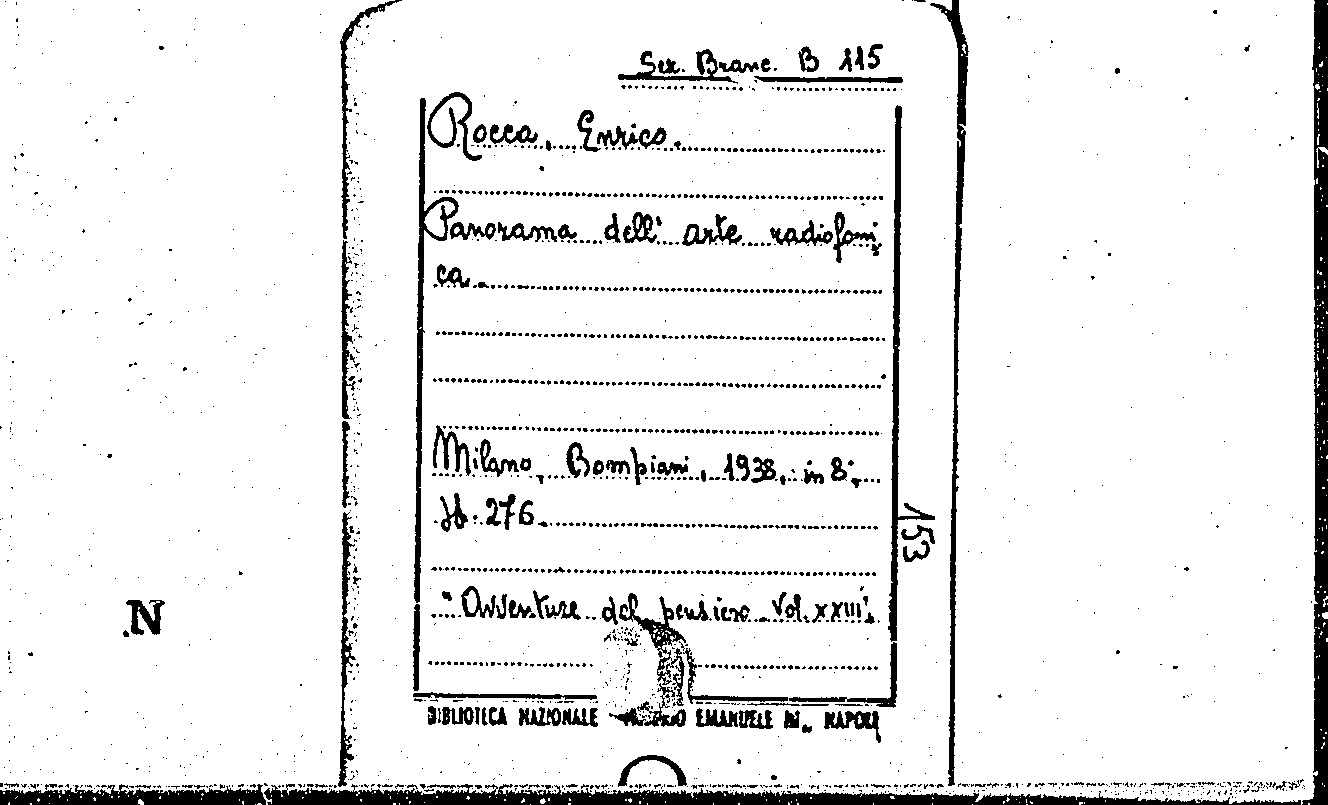 Sez. Branc. B 115
Rocca, Enrico.
Panorama dell' arte radiofoni-
ca.
Milano, Bompiani, 1938, in 8°,
pp. 276.
"Avventure del pensiero Vol. XXIII"
153
N
BIBLIOTECA NAZIONALE EMANUELE III NAPOLI